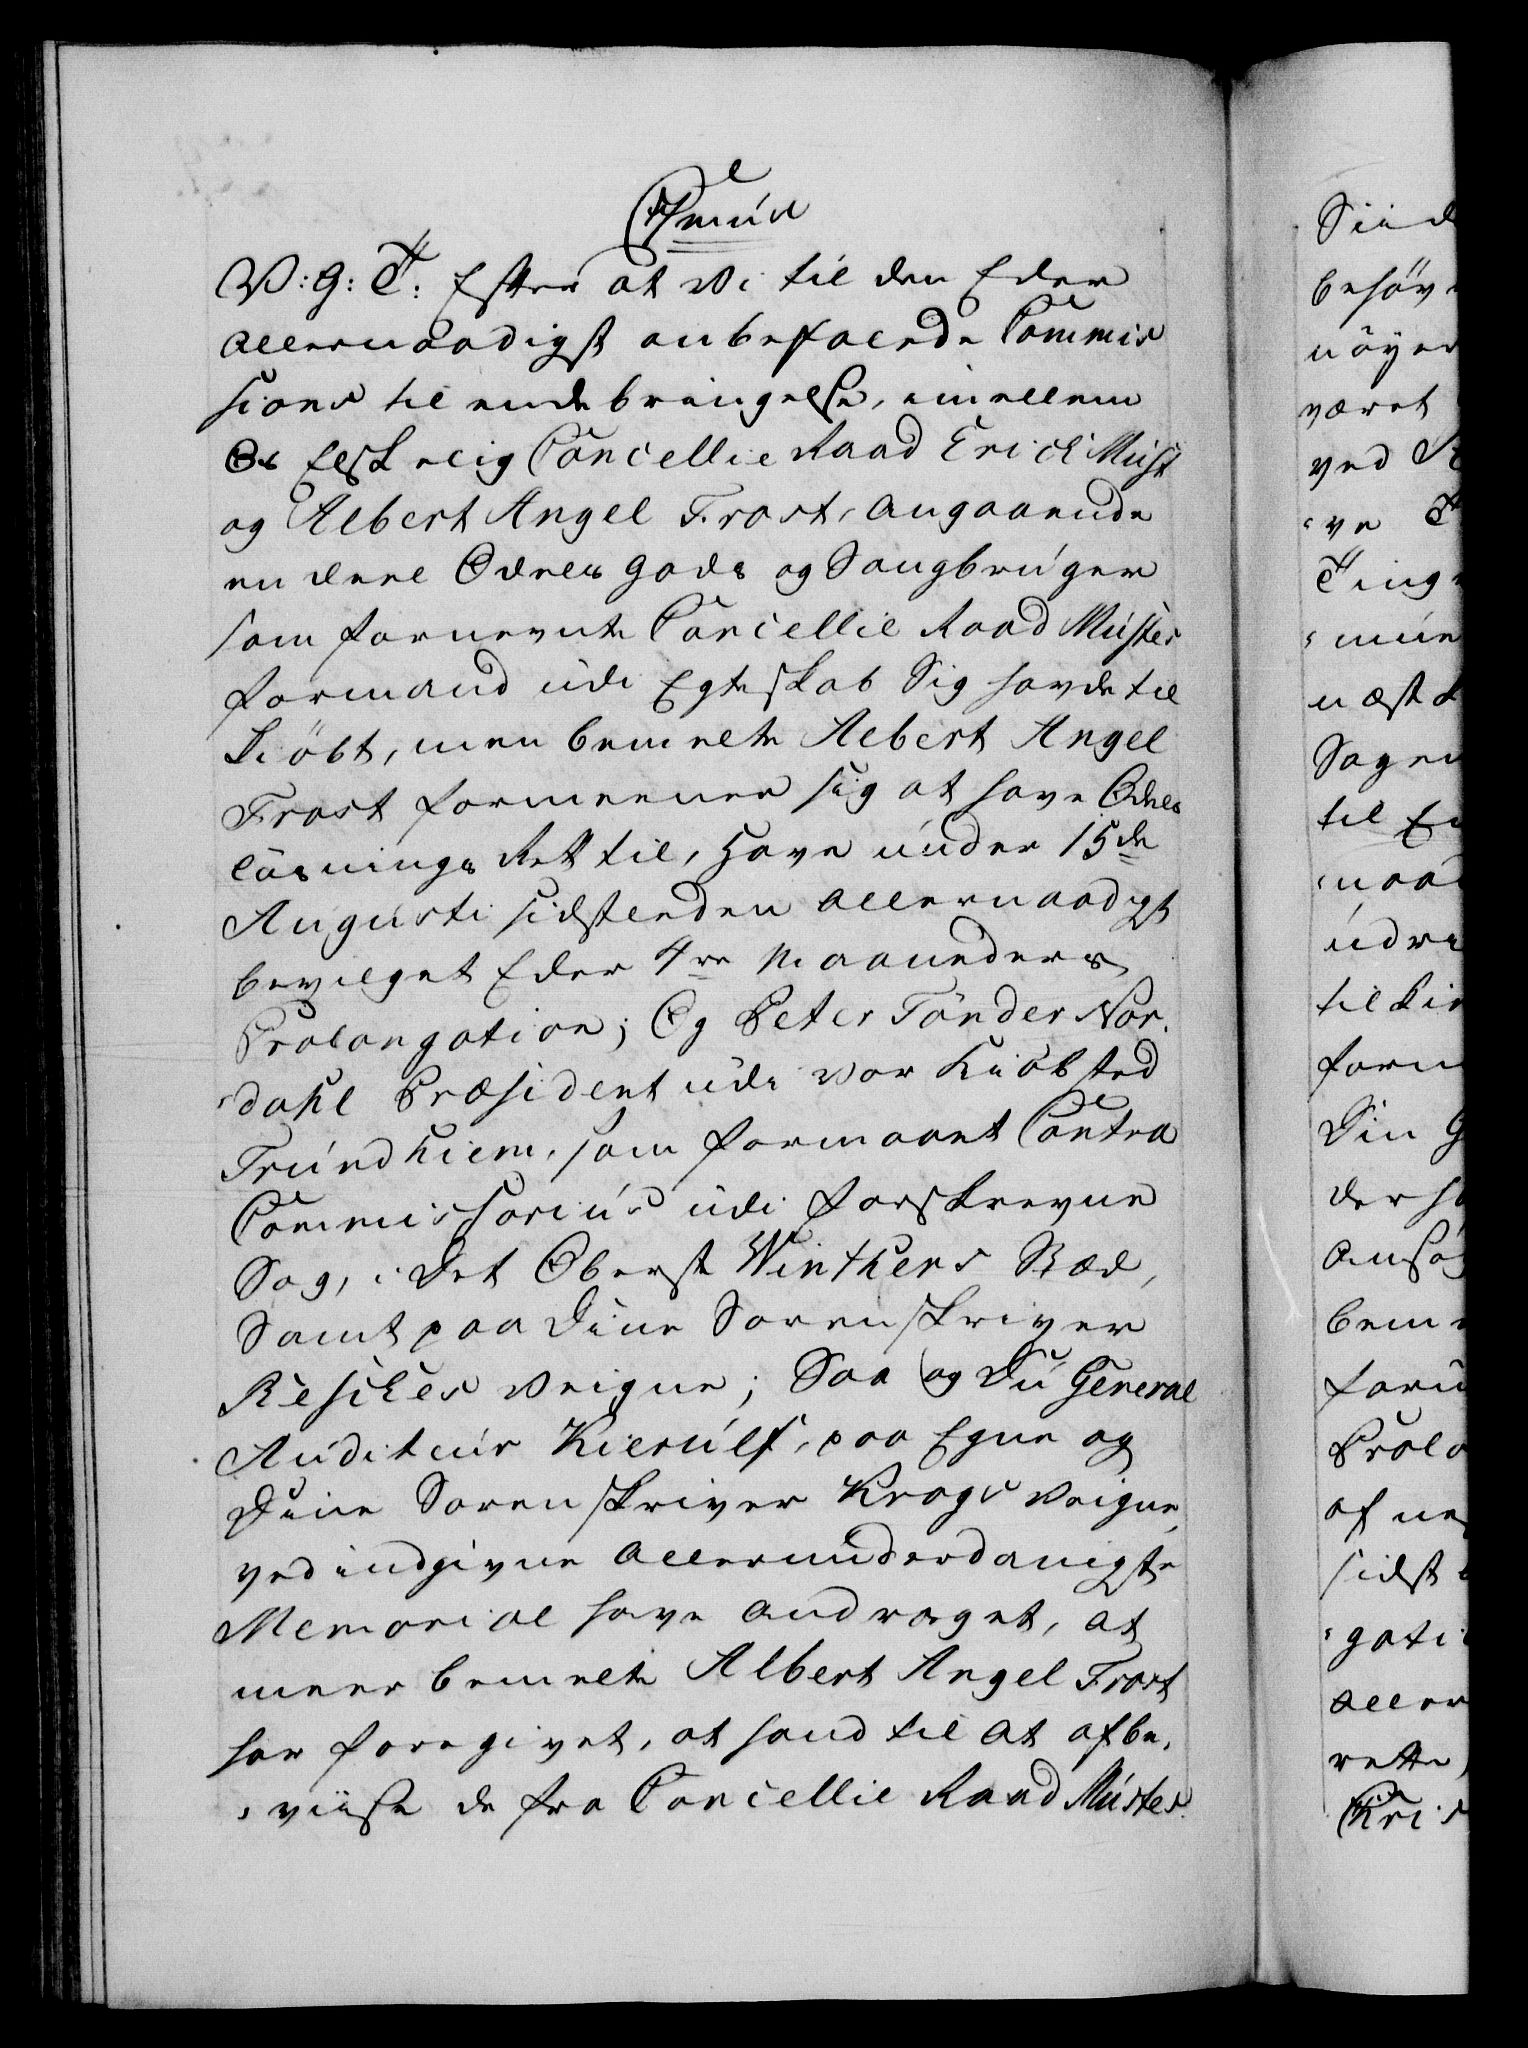 V: G: T: Efter at Vi til den Eder
allernaadigst anbefalede Commis
sions til endebringelse, imellem
Os Elskelig Cancellie Raad Erich Must
og Albert Angel Frost, angaaende
en deel Odels gods og Saugbruger
som fornevnte Cancellie Raad Müstes
formand udi Egteskab Sig havde til
kiöbt, men bemelte Albert Angel
Frost formeener sig at have Odels
lösnings Rett til, have under 15de
Augusti sidstleden allernaadigst
bevilget Eder 4re Maaneders
Prolongation; Og Peter Tönder Nor,
dahl Præsident udi vor Kiöbsted
Trundhiem, som formaant Contra
Commissarius udi forskrevne
Sag, i det Oberst Winthers Stæd,
Samt paa dine Sorenskriver
Reiches veigne; Saa og Du General
Auditeur Kierulf, paa Egne og
Dine Sorenskriver Krags veigne
ved indgivne allerunderdanigste
Memorial have andraget, at
meer bemelte Albert Angel Frost
har foregivet, at hand til at afbe,
viise de fra Cancellie Raad Müstes

Siid
behöv
nöyer
været
ved
ve
Ting
mün
næst
Sagen
til
naad
udi
til
form
Din
der
ansög
bem
foru
Prolo
af
sidst
gati
aller
rette